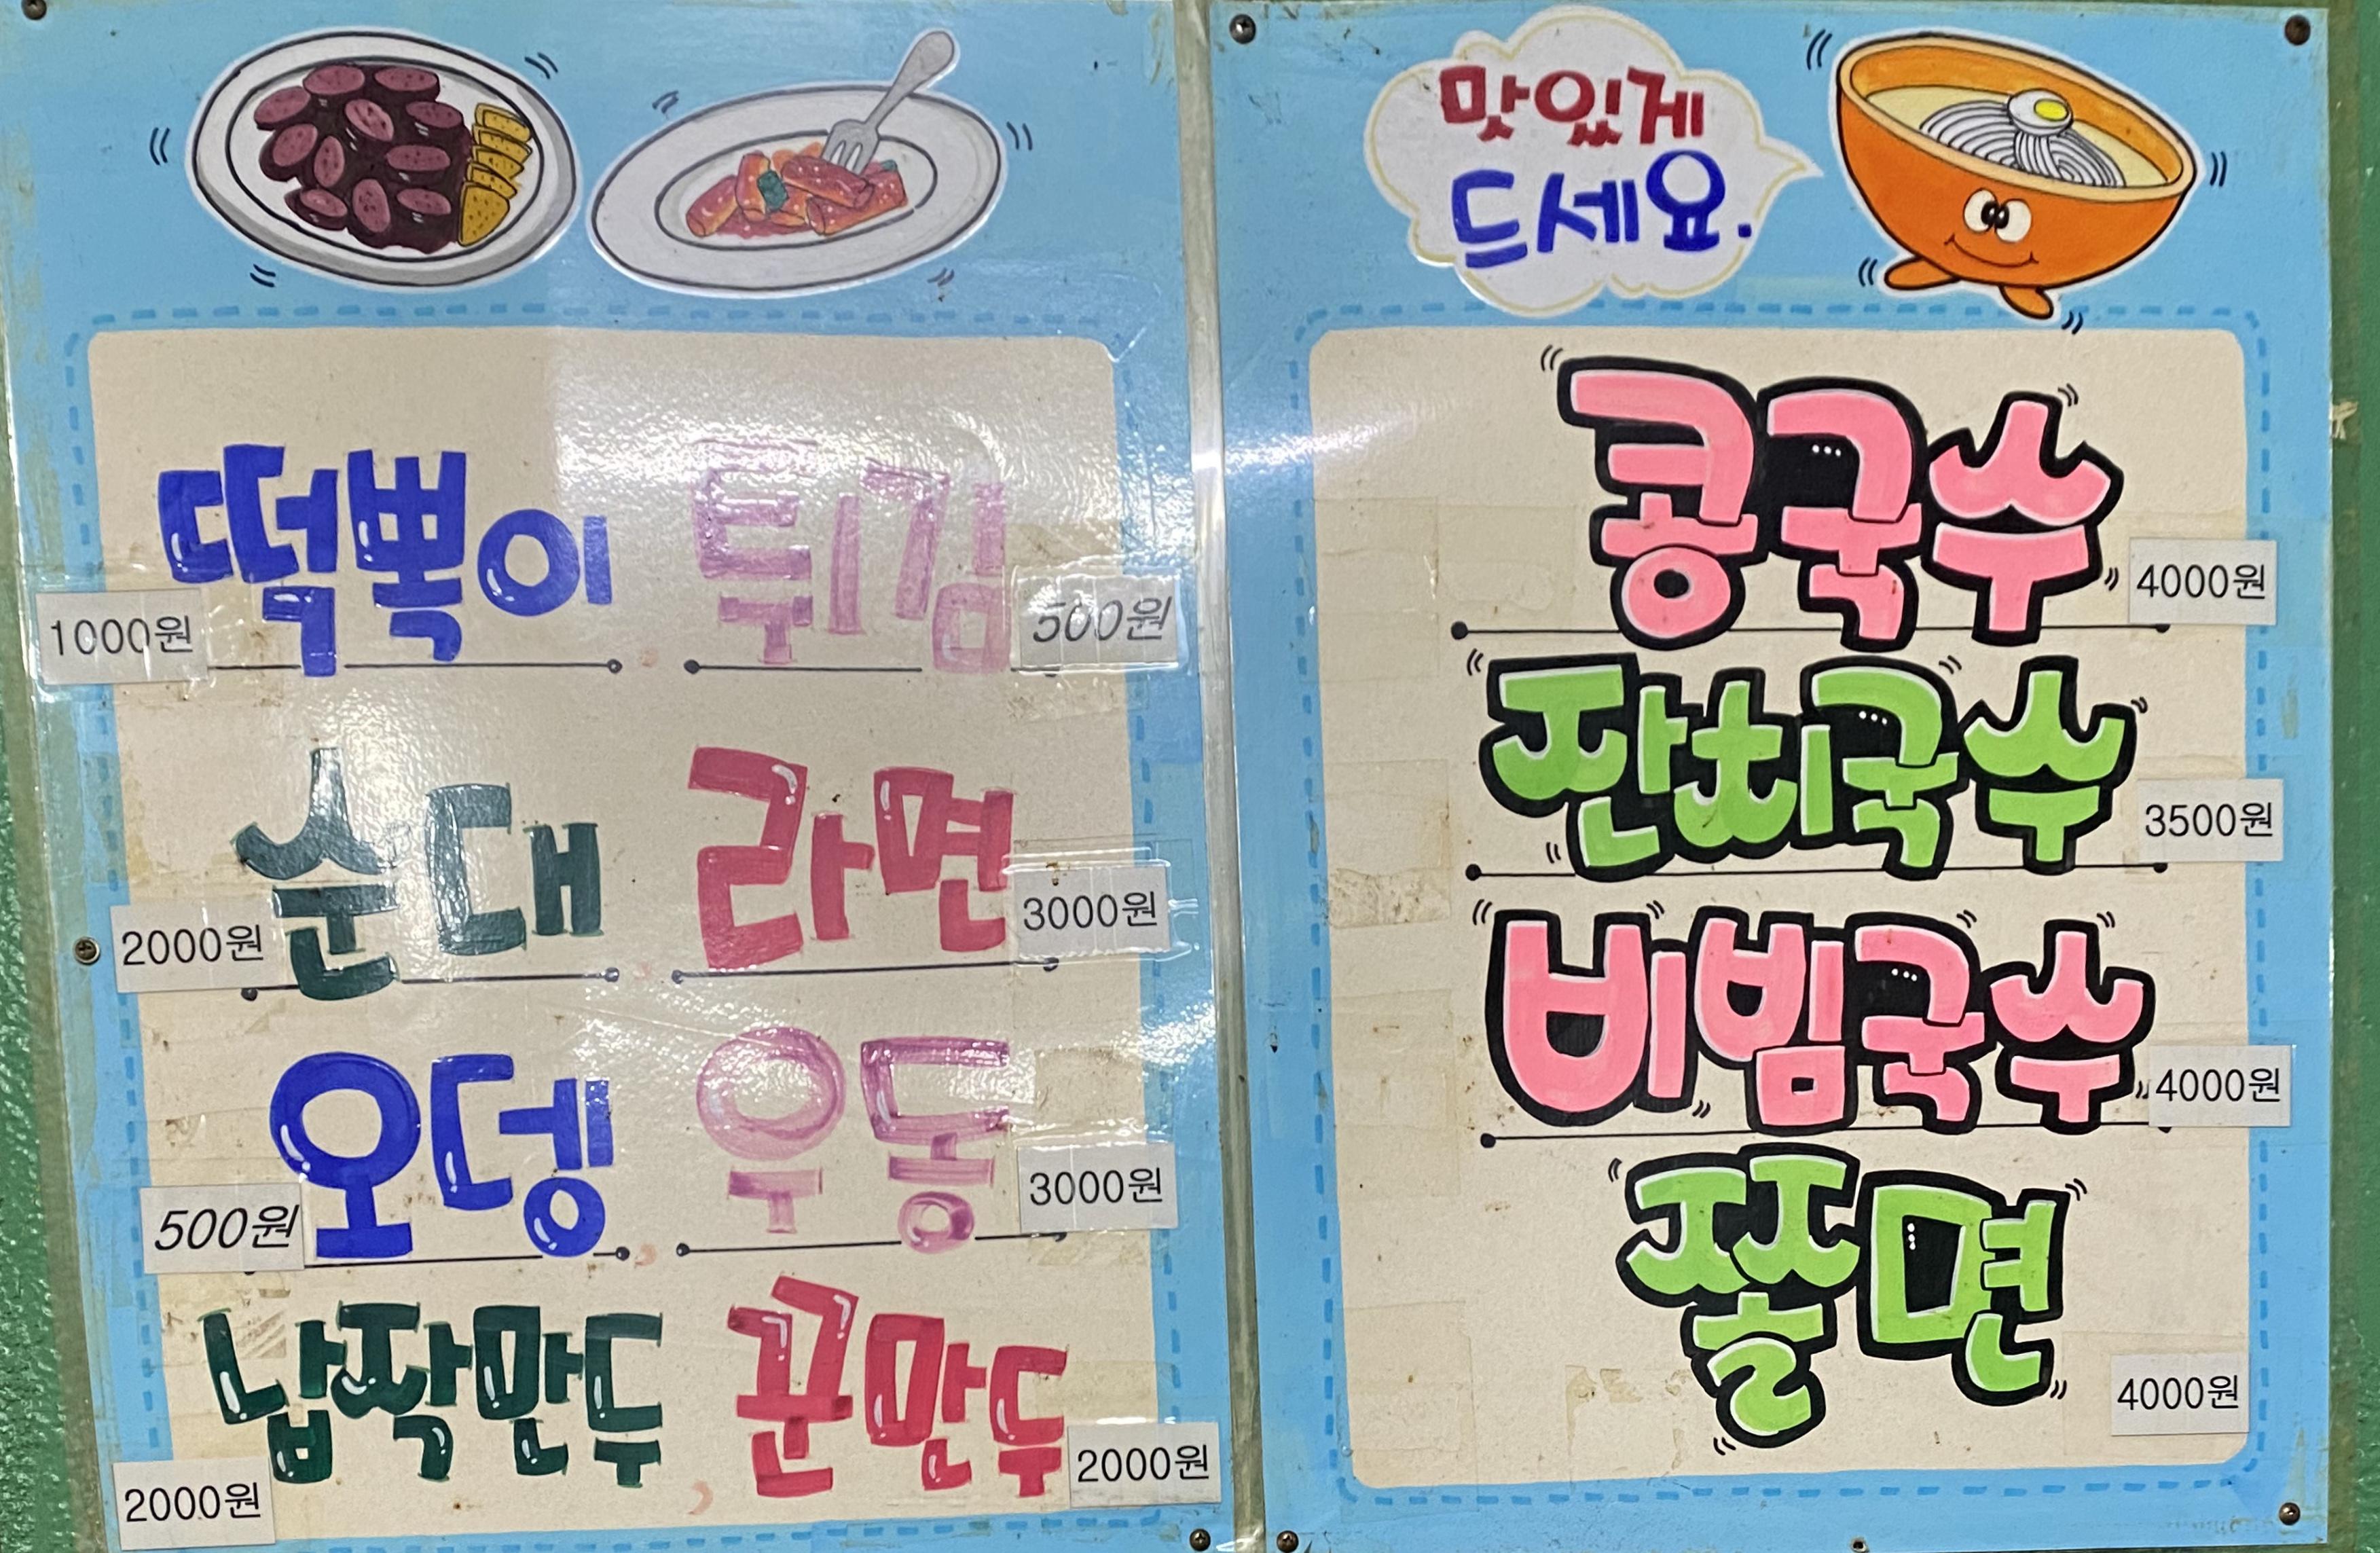 떡볶이 튀김
1000원 500원
순대 라면
2000원 3000원
오뎅 우동
500원 3000원
납짝만두 군만두
2000원 2000원
맛있게
드세요.
콩국수
4000원
잔치국수
3500원
비빔국수
4000원
쫄면
4000원